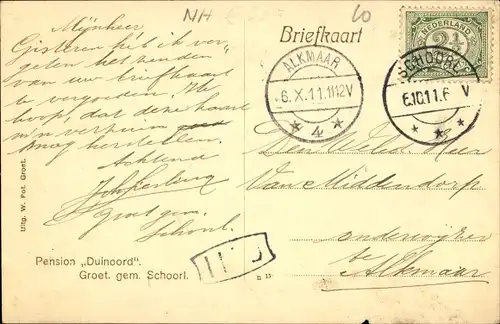 NH
60
Briefkaart
NEDERLAND
2½
ALKMAAR
6.X.11.1112V
4
SCHOORL
6.10.11.6 V
Mijnheer
Gisteren heb ik ver-
geten het zenden
van uw briefkaart
te vergoeden. Ik
hoop, dat deze kaart
m'n verzuim
mag herstellen.
Achtend
Groet gem.
Schoorl.
Den Weled. Heer
Van Middendorp
onderwijzer
te
Alkmaar
Uitg. W. Fot. Groet.
Pension „Duinoord".
Groet. gem. Schoorl.